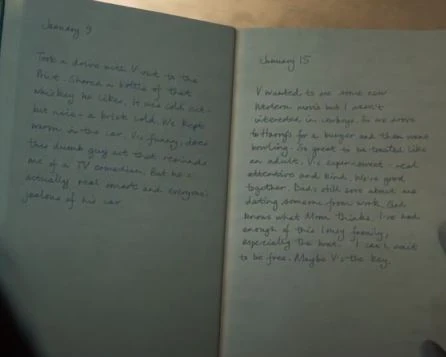 January 9
Took a drive with V out to the
Point. Shared a bottle of that
whiskey he likes. It was cold out
but nice - a brisk cold. We kept
warm in the car. V's funny, does
this dumb guy act that reminds
me of a TV comedian. But he's
actually real smart and everyone's
jealous of his car.
January 15
V wanted to see some new
Western movie but I wasn't
interested in cowboys. So we drove
to Harry's for a burger and then went
bowling. So great to be treated like
an adult. V's experienced - real
attentive and kind. We're good
together. Dad's still sore about me
dating someone from work. God
knows what Mom thinks. I've had
enough of this lousy family,
especially the I can't wait
to be free. Maybe V's the key.